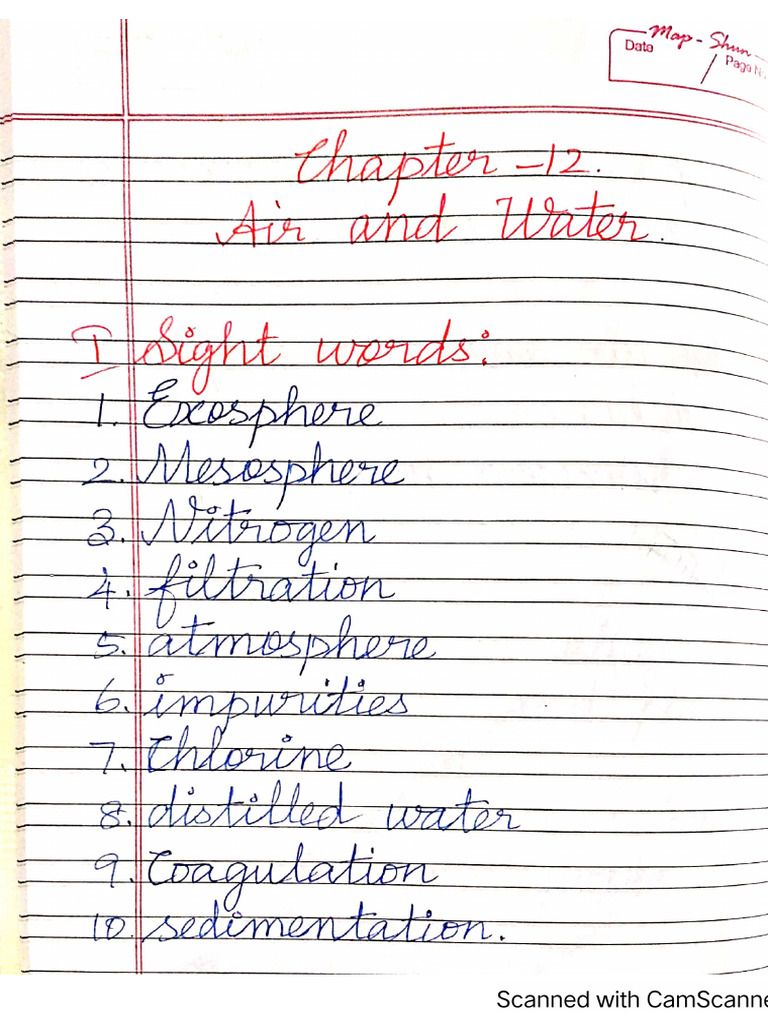 Map - Shun
Date
Page N
Chapter -12.
Air and Water.
I Sight words:
1. Exosphere
2. Mesosphere
3. Nitrogen
4. filtration
5. atmosphere
6. impurities
7. Chlorine
8. distilled water
9. Coagulation
10. sedimentation.
Scanned with CamScanne